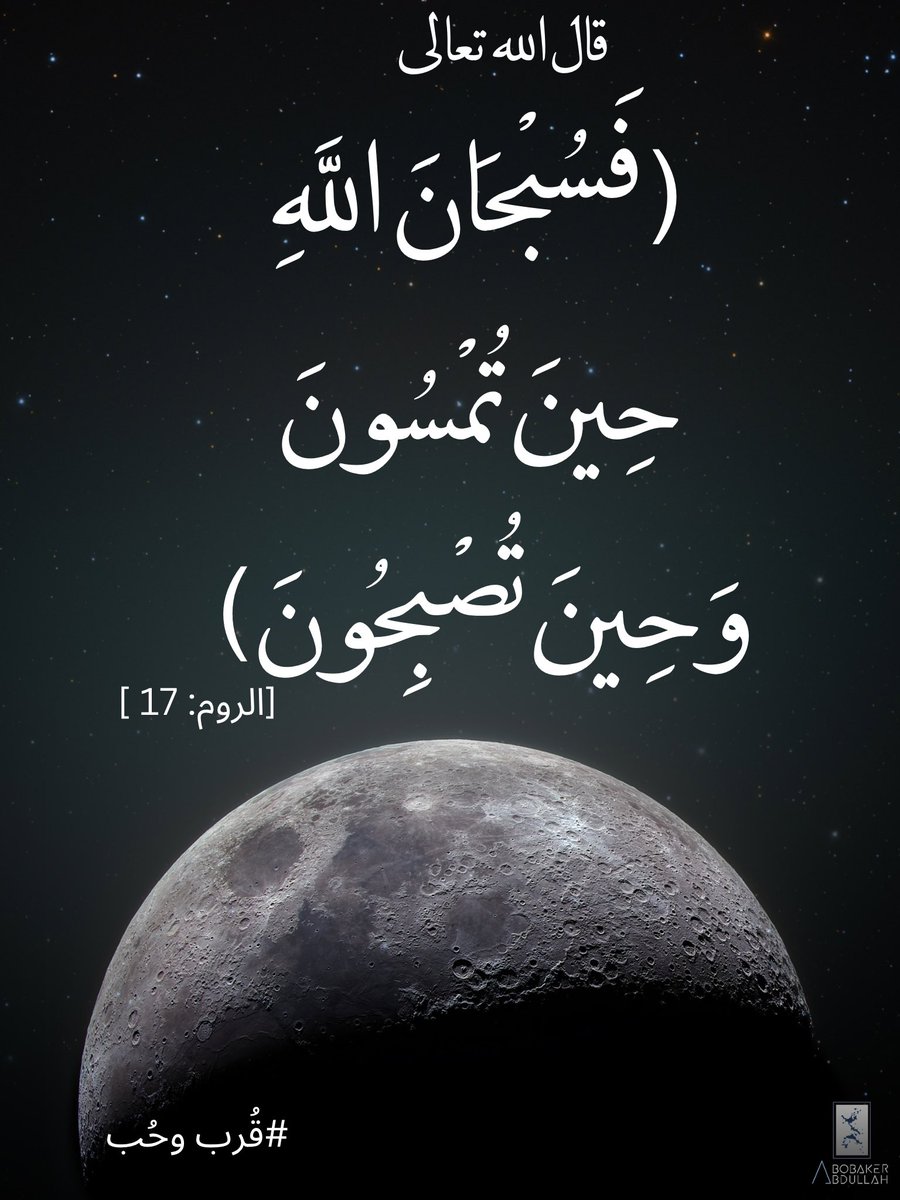 قال الله تعالى
(فَسُبْحَانَ اللَّهِ
حِينَ تُمْسُونَ
وَحِينَ تُصْبِحُونَ)
[الروم: 17 ]
#قُرب وحُب
ABOBAKER
ABDULLAH